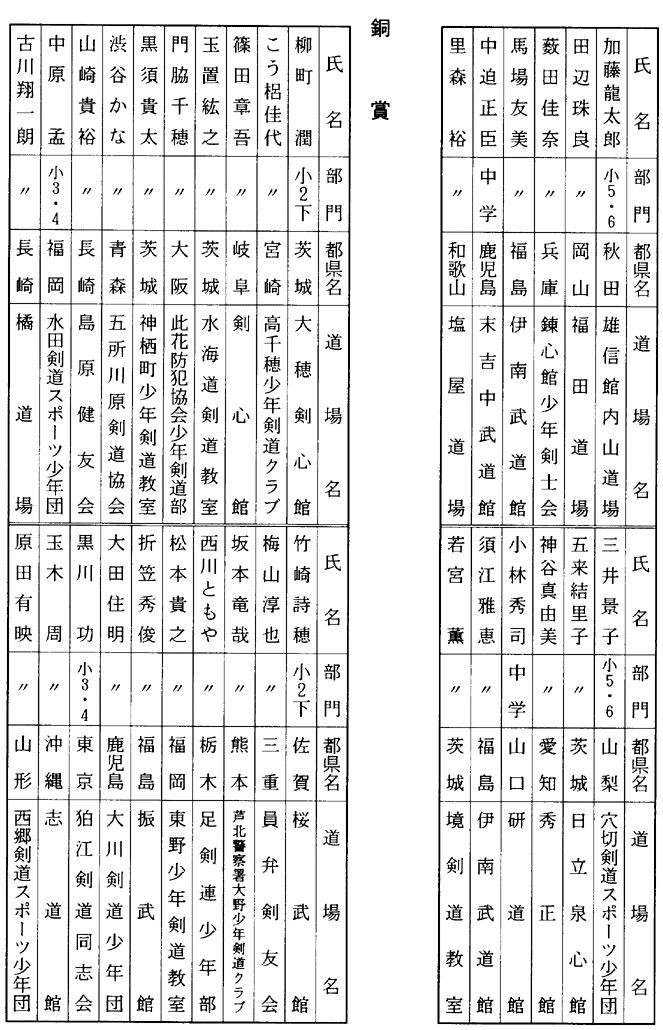 氏名 部門 都県名 道場名 氏名 部門 都県名 道場名
加藤龍太郎 小5・6 秋田 雄信館内山道場 三井景子 小5・6 山梨 穴切剣道スポーツ少年団
田辺珠良 〃 岡山 福田道場 五来結里子 〃 茨城 日立泉心館
薮田佳奈 〃 兵庫 錬心館少年剣士会 神谷真由美 〃 愛知 秀正館
馬場友美 〃 福島 伊南武道館 小林秀司 中学 山口 研道館
中迫正臣 中学 鹿児島 末吉中武道館 須江雅恵 〃 福島 伊南武道館
里森裕 〃 和歌山 塩屋道場 若宮薫 〃 茨城 境剣道教室
銅賞
氏名 部門 都県名 道場名 氏名 部門 都県名 道場名
柳町潤 小2下 茨城 大穂剣心館 竹崎詩穂 小2下 佐賀 桜武館
こう梠佳代 〃 宮崎 高千穂少年剣道クラブ 梅山淳也 〃 三重 員弁剣友会
篠田章吾 〃 岐阜 剣心館 坂本竜哉 〃 熊本 芦北警察署大野少年剣道クラブ
玉置紘之 〃 茨城 水海道剣道教室 西川ともや 〃 栃木 足剣連少年部
門脇千穂 〃 大阪 此花防犯協会少年剣道部 松本貴之 〃 福岡 東野少年剣道教室
黒須貴太 〃 茨城 神栖町少年剣道教室 折笠秀俊 〃 福島 振武館
渋谷かな 〃 青森 五所川原剣道協会 大田住明 〃 鹿児島 大川剣道少年団
山崎貴裕 〃 長崎 島原健友会 黒川功 小3・4 東京 狛江剣道同志会
中原孟 小3・4 福岡 水田剣道スポーツ少年団 玉木周 〃 沖縄 志道館
古川翔一朗 〃 長崎 橘道場 原田有映 〃 山形 西郷剣道スポーツ少年団